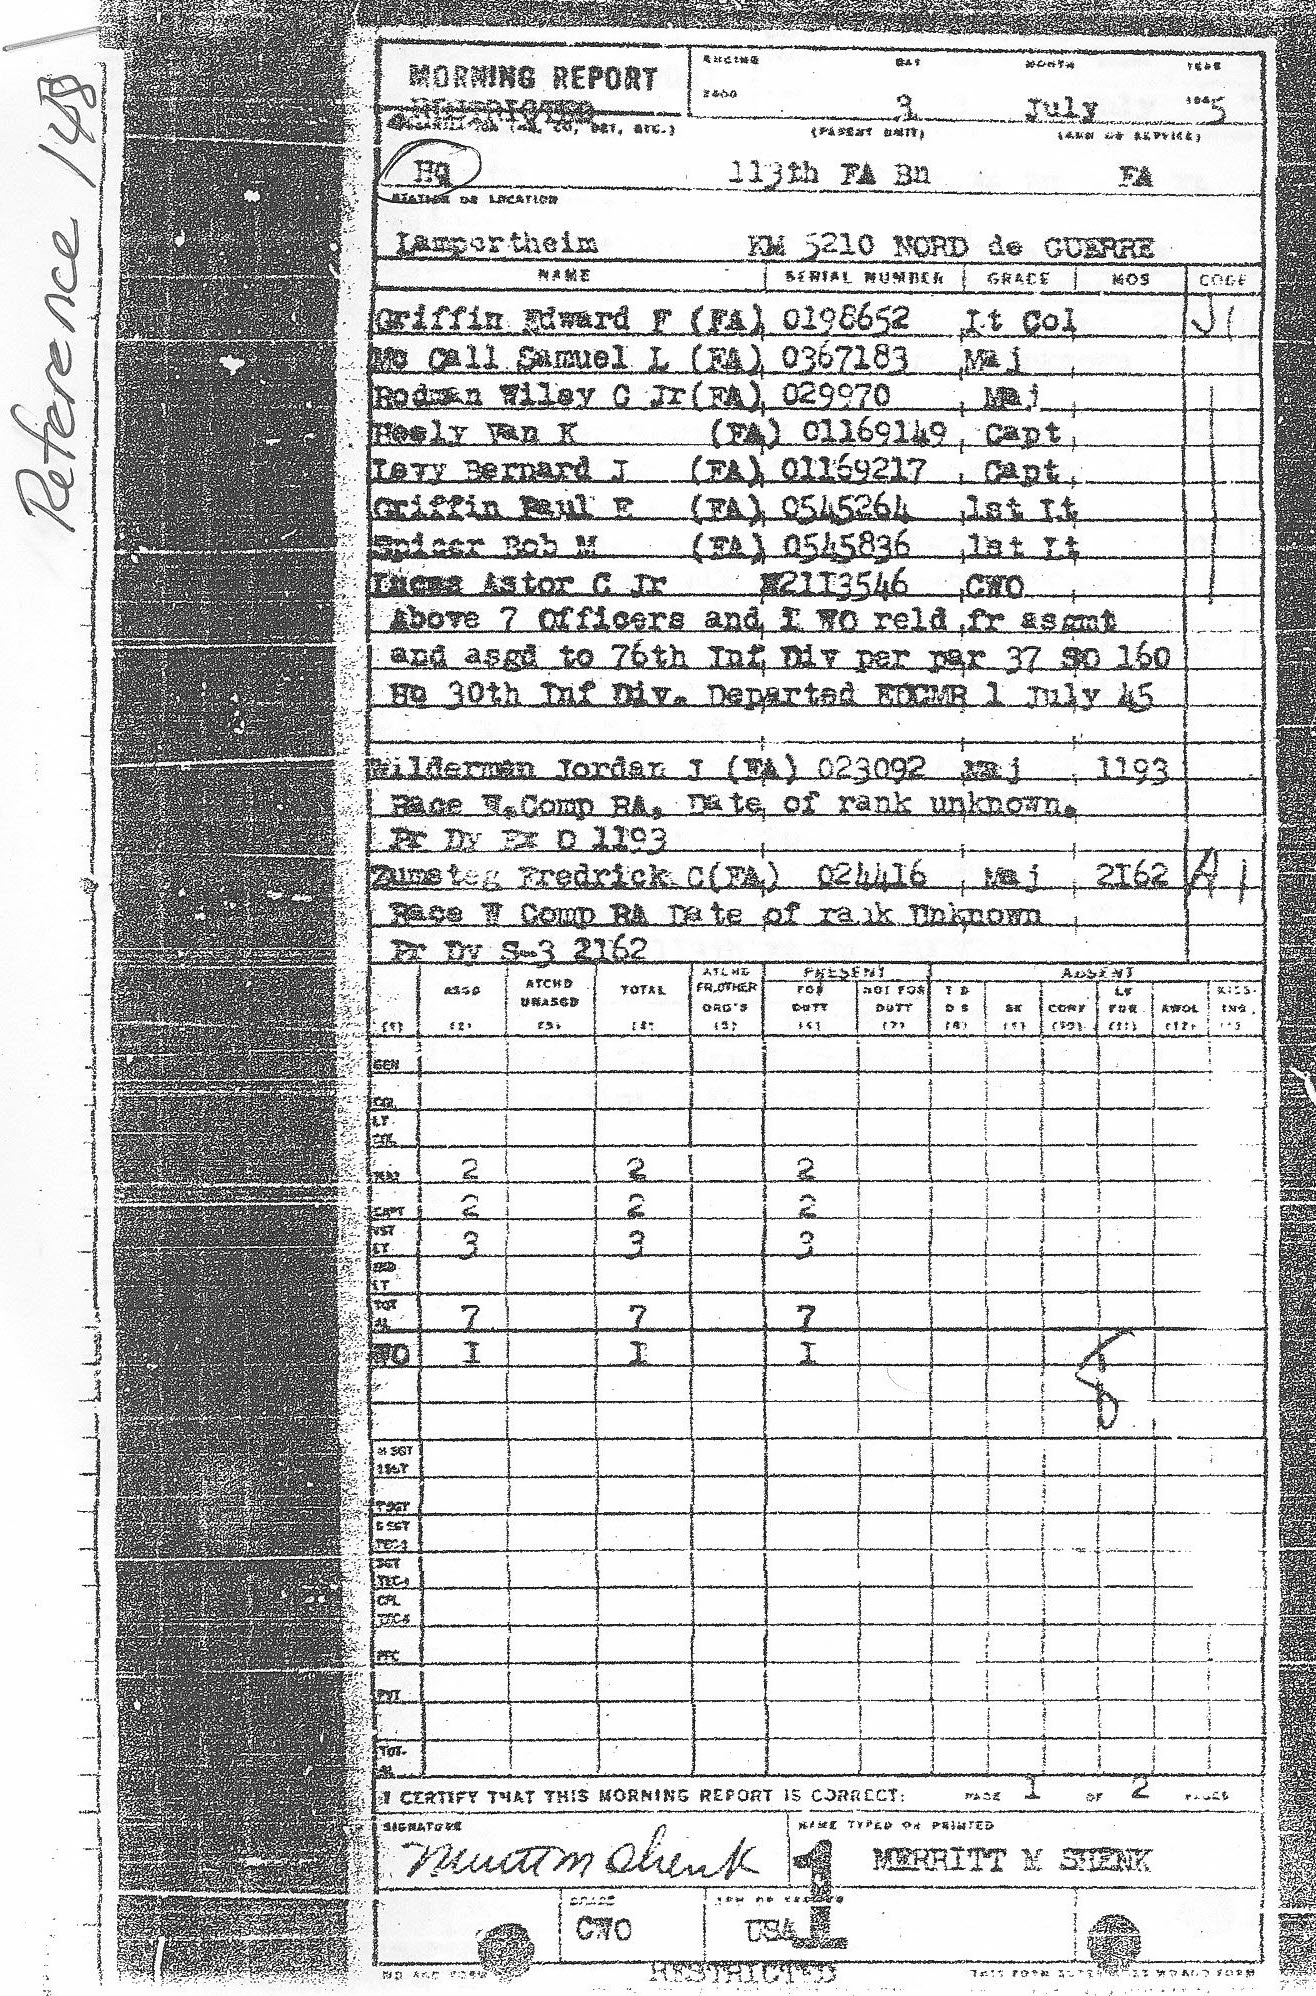 Reference 148
MORNING REPORT
ENDING
DAY
MONTH
YEAR
2400
3
July
1945
(PARENT UNIT)
(ARM OF SERVICE)
Hq
113th FA Bn
FA
STATION OR LOCATION
Lampertheim
KM 5210 NORD de GUERRE
NAME SERIAL NUMBER GRADE MOS CODE
Griffin Edward F (FA) 0198652 Lt Col
Mc Call Samuel L (FA) 0367183 Maj
Rodman Wiley C Jr(FA) 029970 Maj
Heely Van K (FA) 01169149 Capt
Levy Bernard J (FA) 01169217 Capt
Griffin Paul E (FA) 0545264 1st Lt
Spicer Bob M (FA) 0545836 1st Lt
Lucas Astor C Jr W2113546 CWO
Above 7 Officers and 1 WO reld fr asgmt
and asgd to 76th Inf Div per par 37 SO 160
Hq 30th Inf Div. Departed EDCMR 1 July 45
Wilderman Jordan J (FA) 023092 Maj 1193
Race W.Comp RA. Date of rank unknown.
Pr Dy Ex O 1193
Zumsteg Fredrick C(FA) 024416 Maj 2162
Race W Comp RA Date of rank Unknown
Pr Dy S-3 2162
PRESENT ABSENT
ASGD ATCHD UNASGD TOTAL ATCHD FR.OTHER ORG'S FOR DUTY NOT FOR DUTY T D D S SK CONF AWOL
(1) (2) (3) (4) (5) (6) (7) (8) (9) (10) (11) (12)
GEN
COL
LT COL
MAJ 2 2 2
CAPT 2 2 2
1ST LT 3 3 3
2ND LT
TOTAL 7 7 7
WO 1 1 1
8
M SGT
1SGT
TSGT
S SGT
TEC-3
SGT
TEC-4
CPL
TEC-5
PFC
PVT
TOTAL
I CERTIFY THAT THIS MORNING REPORT IS CORRECT: PAGE 1 OF 2 PAGES
SIGNATURE
NAME TYPED OR PRINTED
Merritt M Shenk
MERRITT M SHENK
1
GRADE
CWO
USA
RESTRICTED